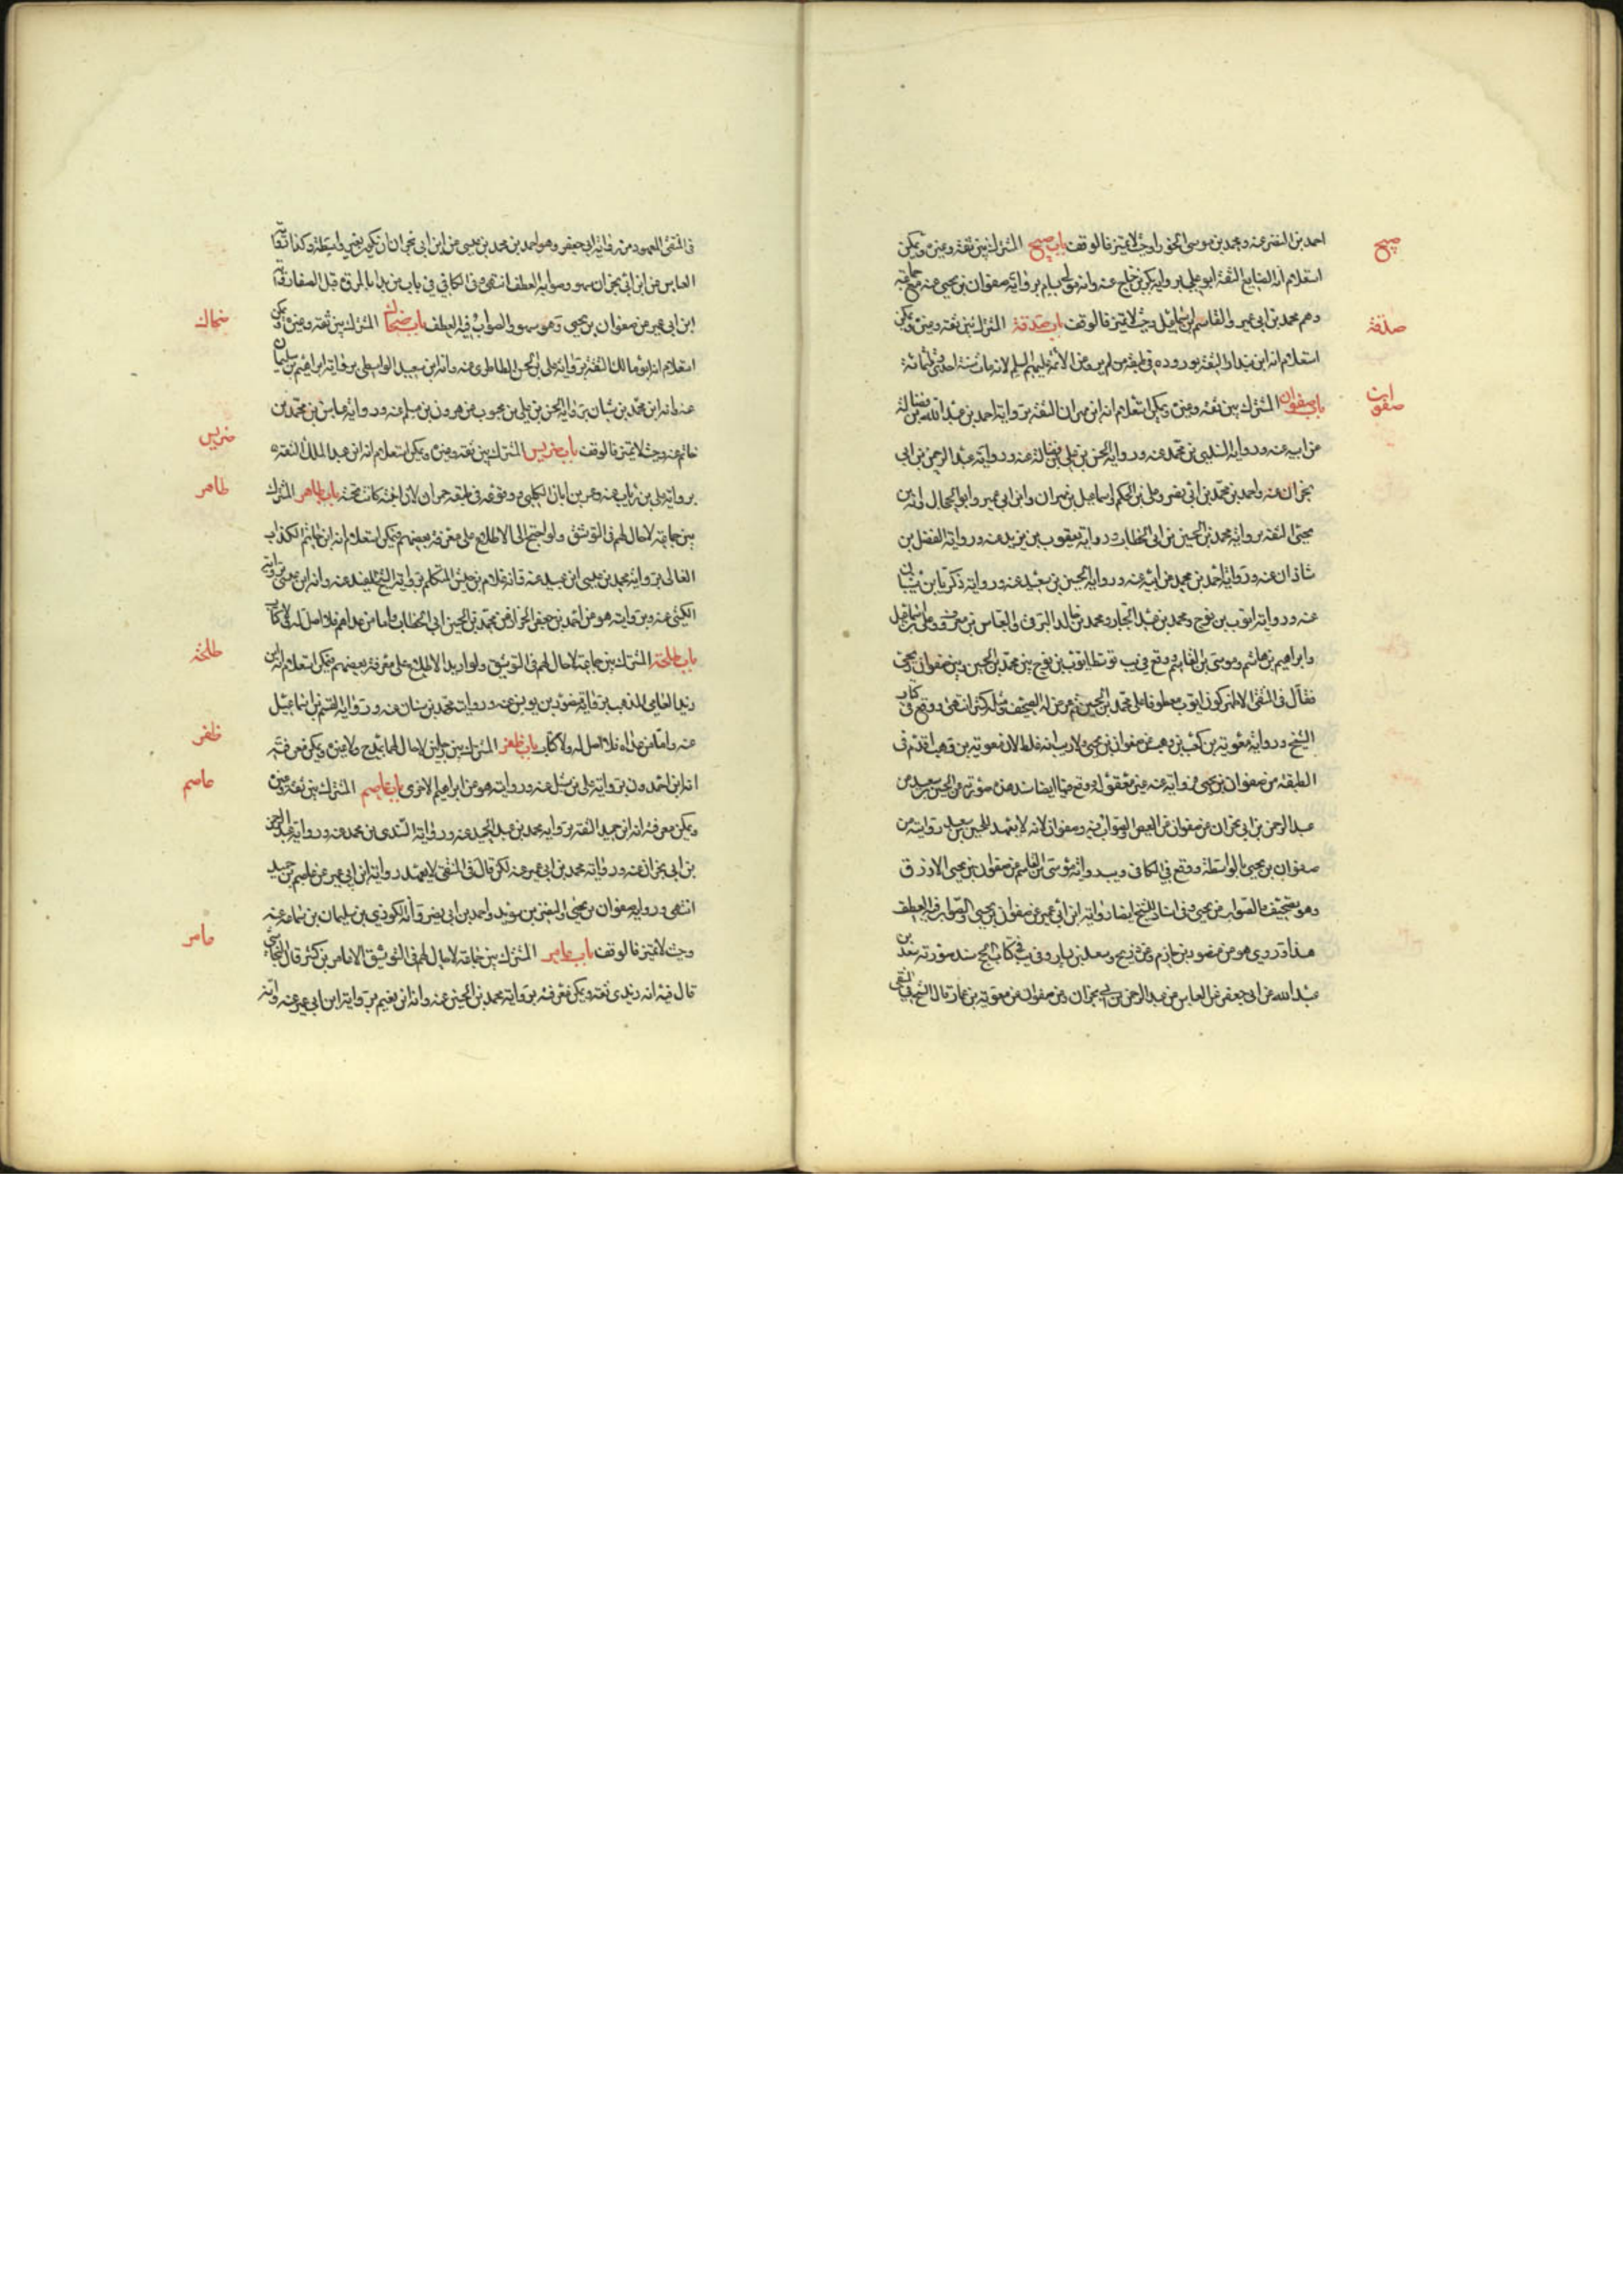 احمد بن النضر عنه ومحمد بن موسى وحيث لا تميز فالوقف باب صبيح المشترك بين ثقة وغيره ويمكن
صبيح
استعلام انه الصايغ الثقة ابو علي برواية عنه وانه برواية صفوان بن يحيى عنه
وهم محمد بن ابي عمير والقاسم بن اسماعيل وحيث لا تميز فالوقف باب صدقة المشترك بين ثقة وغيره ويمكن
صدقة
استعلام انه ابن بندار الثقة بوروده في طبقة من لم يرو عن الائمة عليهم السلم لانه مات سنة احدى وثلثمائة
باب صفوان المشترك بين ثقة وغيره ويمكن استعلام انه ابن مهران الثقة برواية احمد بن عبد الله بن فضالة
صفوان
من ابيه عنه ورواية السندي بن محمد عنه ورواية الحسن بن علي بن فضال عنه ورواية عبد الرحمن بن ابي
نجران عنه واحمد بن محمد بن ابي نصر وعلي بن الحكم واسماعيل بن مهران وابن ابي عمير وانه ابن
يحيى الثقة برواية محمد بن الحسين بن ابي الخطاب ورواية يعقوب بن يزيد عنه ورواية الفضل بن
شاذان عنه ورواية احمد بن محمد عن ابيه عنه ورواية الحسين بن سعيد عنه ورواية زكريا بن شيبان
عنه ورواية ايوب بن نوح ومحمد بن عبد الجبار ومحمد بن خالد البرقي والعباس بن معروف وعلي بن اسماعيل
وابراهيم بن هاشم وموسى بن القاسم ووقع في يب توسط ايوب بن نوح بين محمد بن الحسين وبين صفوان بن يحيى
فقال في المنتقى الاظهر كون ايوب معطوفا على محمد بن الحسين ومثله كثير انتهى ووقع في كتاب
الشيخ ورواية معوية بن وهب عن صفوان بن يحيى ولا ريب انه غلط لان معوية بن وهب اقدم في
الطبقة من صفوان بن يحيى فروايته عنه غير معقولة ووقع ايضا سند هذه صورته عن الحسين بن سعيد عن
عبد الرحمن بن ابي نجران عن صفوان عن العيص والصواب فيه وصفوان لانه لا يعهد للحسين بن سعيد رواية عن
صفوان بن يحيى بالواسطة ووقع في الكافي رواية موسى بن القاسم عن صفوان بن يحيى الازرق
وهو تصحيف فالصواب عن يحيى وفي اسناد للشيخ ايضا رواية ابن ابي عمير عن صفوان بن يحيى والصواب فيه العطف
هذا وقد روي هو عن منصور بن حازم وعن وسعد بن يسار وفي يب في كتاب الحج سند صورته سعد بن
عبد الله عن ابي جعفر عن العباس عن عبد الرحمن بن ابي نجران عن صفوان عن معوية بن عمار قال الشيخ في المنتقى
في المنتقى المعهود من رواية ابي جعفر وهو احمد بن محمد بن عيسى عن ابن ابي نجران ان تكون بغير واسطة وكذا رواية
العباس عن ابن ابي نجران سهو وصوابه العطف انتهى وفي الكافي في باب من بدا بالمروة قبل الصفا رواية
ابن ابي عمير عن صفوان بن يحيى وهو سهو والصواب فيه العطف باب ضحاك المشترك بين ثقة وغيره ويمكن
ضحاك
استعلام انه ابو مالك الثقة برواية علي بن الحسن الطاطري عنه وانه ابن سعيد الواسطي برواية ابراهيم بن سليمان
عنه وانه ابن محمد بن شيبان برواية الحسن بن علي بن محبوب عن هرون بن مسلم عنه ورواية عباس بن محمد بن
حاتم عنه وحيث لا تميز فالوقف باب ضريس المشترك بين ثقة وغيره ويمكن استعلام انه ابن عبد الملك الثقة
ضريس
برواية علي بن رئاب عنه وعمر بن ابان الكلبي ووقوعه في طبقة حمران لان ابنته كانت تحته باب طاهر المشترك
طاهر
بين جماعة لا حال لهم في التوثيق ولو احتيج الى الاطلاع على معرفة بعضهم فيمكن استعلام انه ابن حاتم الكذاب
الغالي برواية محمد بن عيسى ابن عبيد عنه وانه غلام بن حبيش المتكلم برواية الشيخ المفيد عنه وانه ابن عيسى برواية
الكشي عنه وبروايته هو عن احمد بن جعفر الخزاز عن محمد بن الحسين ابي الخطاب واما من عداهم فلا اصل له ولا كتاب
باب طلحة المشترك بين جماعة لا حال لهم في التوثيق ولو اريد الاطلاع على معرفة بعضهم فيمكن استعلام انه ابن
طلحة
زيد العامي المذهب برواية منصور بن يونس عنه ورواية محمد بن سنان عنه ورواية القسم بن اسماعيل
عنه واما من عداه فلا اصل له ولا كتاب باب ظفر المشترك بين رجلين لا حال لهما بمدح ولا غيره ويمكن معرفة
ظفر
انه ابن احمدون برواية علي بن شبل عنه وروايته هو عن ابراهيم الاحمري باب عاصم المشترك بين ثقة وغيره
عاصم
ويمكن معرفة انه ابن حميد الثقة برواية محمد بن عبد الحميد عنه ورواية السندي بن محمد عنه ورواية عبد الرحمن
بن ابي نجران عنه ورواية محمد بن ابي عمير عنه لكن قال في المنتقى لا يعهد رواية ابن ابي عمير عن عاصم بن حميد
انتهى ورواية صفوان بن يحيى والنضر بن سويد واحمد بن ابي نصر وانه الكوزي بن سليمان عنه
وحيث لا تميز فالوقف باب عامر المشترك بين جماعة لا حال لهم في التوثيق الا عامر بن كثير قال النجاشي
عامر
قال فيه انه زيدي ثقة ويمكن معرفته برواية محمد بن الحسين عنه وانه ابن نعيم برواية ابن ابي عمير عنه وانه